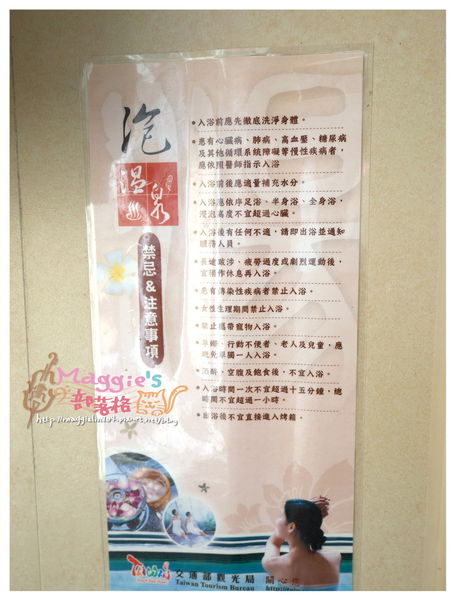 泡
溫泉
禁忌&注意事項
•入浴前應先徹底洗淨身體。
•患有心臟病、肺病、高血壓、糖尿病
及其他循環系統障礙等慢性疾病者,
應依照醫師指示入浴
•入浴前後應適量補充水分。
•入浴應依序足浴、半身浴、全身浴,
浸泡高度不宜超過心臟。
•入浴後有任何不適,請即出浴並通知
服務人員。
•長途跋涉、疲勞過度或劇烈運動後,
宜稍作休息再入浴。
•患有傳染性疾病者禁止入浴。
•女性生理期間禁止入浴。
•禁止攜帶寵物入浴。
•孕婦、行動不便者、老人及兒童,應
避免單獨一人入浴。
•酒醉、空腹及飽食後,不宜入浴。
•入浴時間一次不宜超過十五分鐘,總
時間不宜超過一小時。
•出浴後不宜直接進入烤箱。
Maggie's
部落格
交通部觀光局 關心您
Taiwan Tourism Bureau